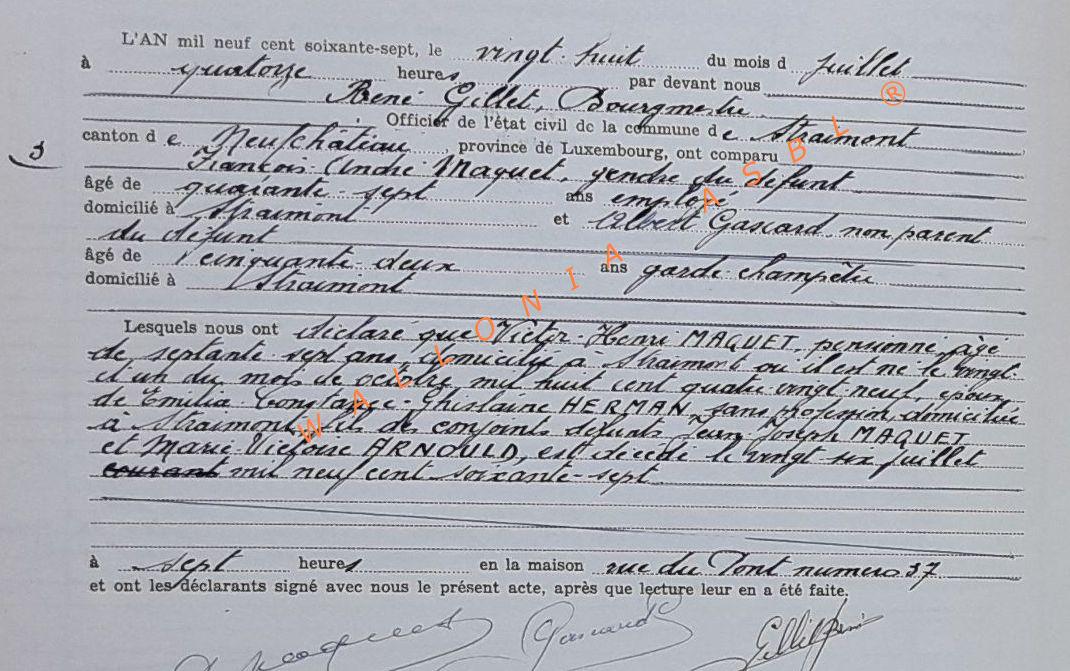 L'AN mil neuf cent soixante-sept, le vingt-huit du mois d juillet
à quatorze heures par devant nous
René Gillet, Bourgmestre
Officier de l'état civil de la commune de Straimont
3
canton de Neufchâteau, province de Luxembourg, ont comparu
François André Maquet, gendre du défunt
âgé de quarante-sept ans employé
domicilié à Straimont et Albert Gascard non parent
du défunt
âgé de cinquante-deux ans garde-champêtre
domicilié à Straimont
Lesquels nous ont déclaré que Victor-Henri MAQUET, pensionné âgé
de septante-sept ans, domicilié à Straimont où il est né le vingt
et un du mois de octobre mil huit cent quatre vingt neuf, époux
de Emilia Constance-Ghislaine HERMAN, sans profession domiciliée
à Straimont, fils des conjoints défunts Jean Joseph MAQUET
et Marie-Victoire ARNOULD, est décédé le vingt six juillet
courant mil neuf cent soixante-sept
à sept heures en la maison rue du Pont numéro 37
et ont les déclarants signé avec nous le présent acte, après que lecture leur en a été faite.
Maquet Gascard Gillet René
WALLONIA ASBL ®